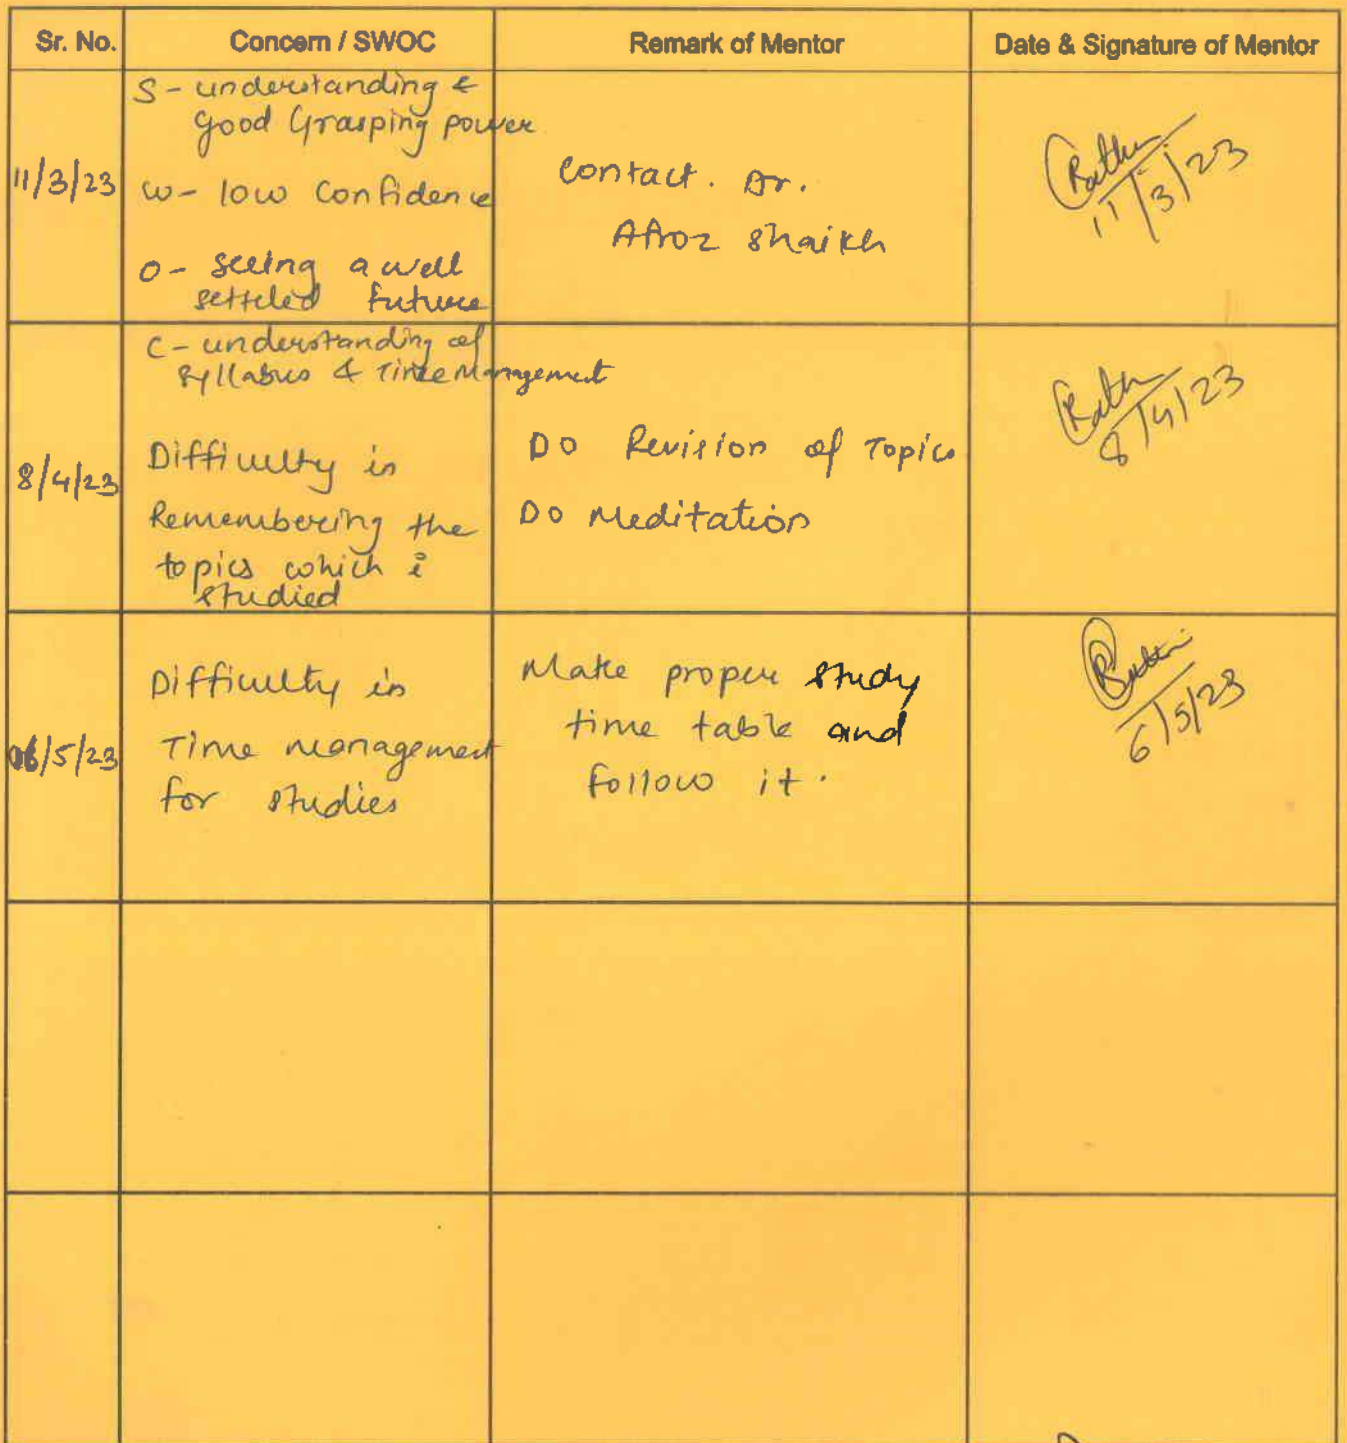 Sr. No. Concern / SWOC Remark of Mentor Date & Signature of Mentor
S - understanding &
good Grasping power
11/3/23
w - low confidence
o - seeing a well
setteled future
Contact. Dr.
Afroz Shaikh
11/3/23
c - understanding of
syllabus & Time Management
8/4/23
Difficulty in
Remembering the
topics which i
studied
Do Revision of Topics
Do Meditation
8/4/23
06/5/23
Difficulty in
Time management
for studies
Make proper study
time table and
follow it.
6/5/23